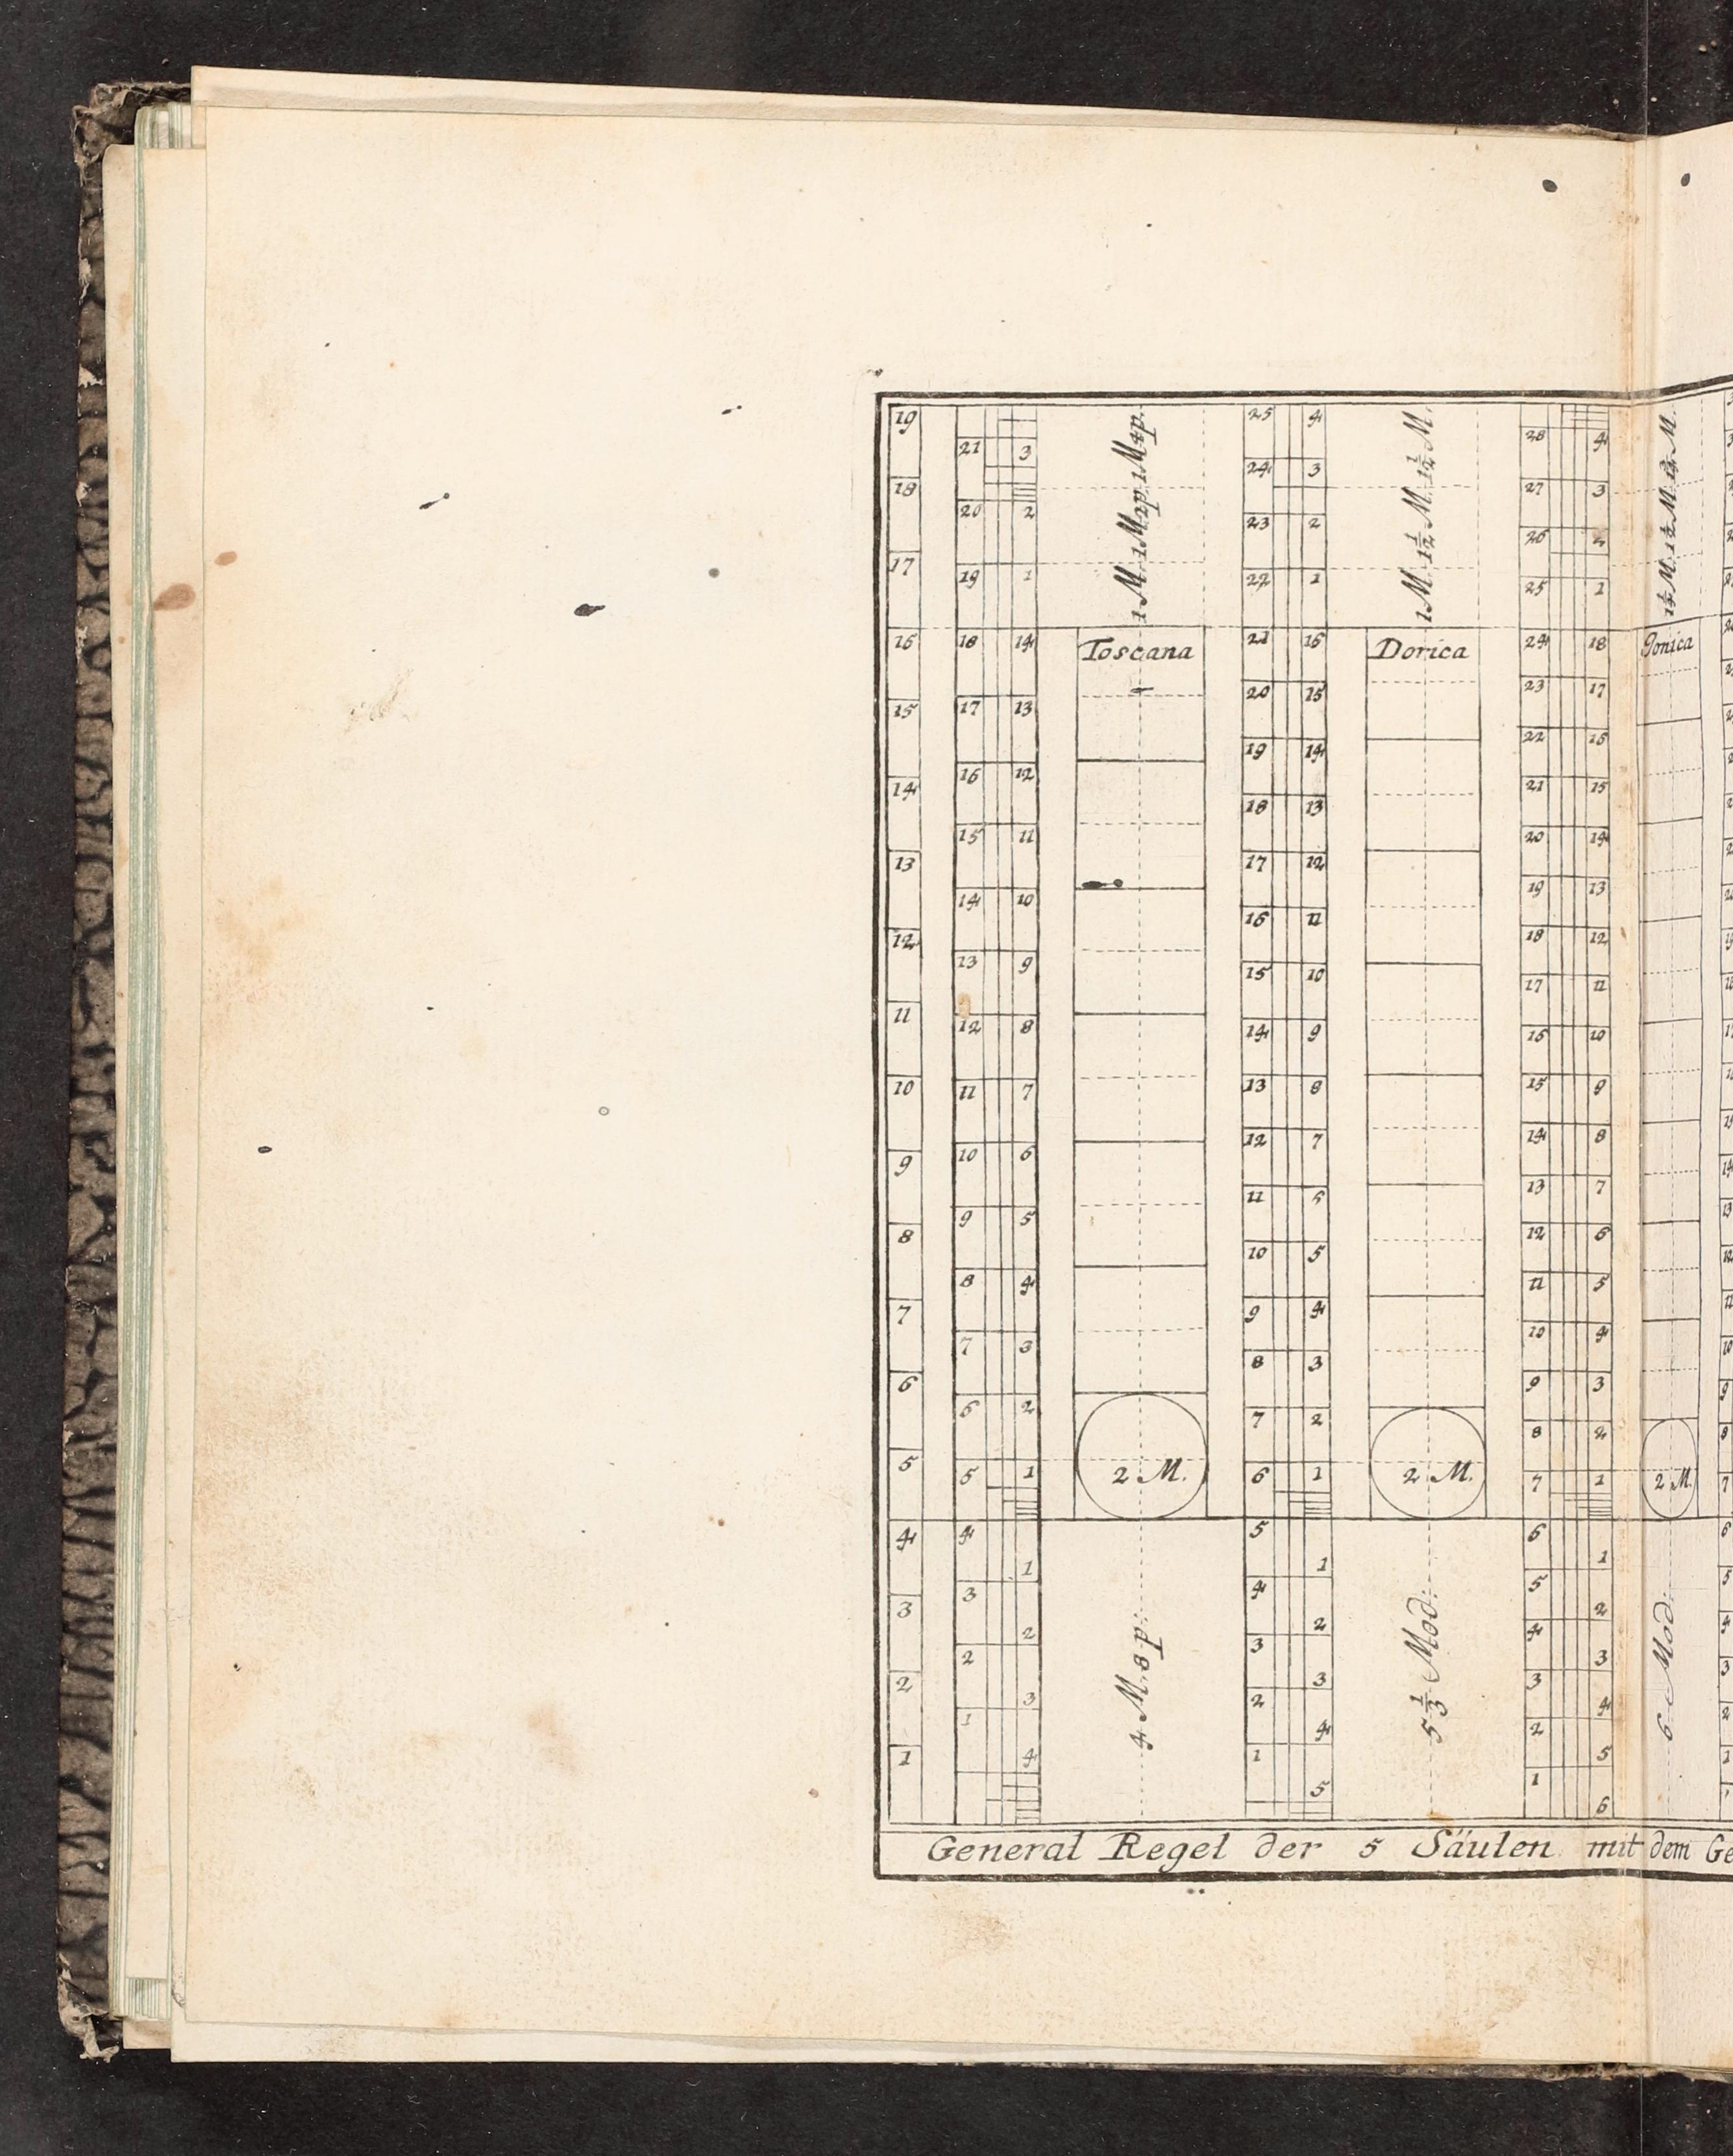 19
18
17
16
15
14
13
12
11
10
9
8
7
6
5
4
3
2
1
21 3
20 2
19 1
18 14
17 13
16 12
15 11
14 10
13 9
12 8
11 7
10 6
9 5
8 4
7 3
6 2
5 1
4
1
3
2
2
3
1
4
1 M. 1 M 2p 1 M 4p.
Toscana
2 M.
4 M. 8 p:
25 4
24 3
23 2
22 1
21 16
20 15
19 14
18 13
17 12
16 11
15 10
14 9
13 8
12 7
11 6
10 5
9 4
8 3
7 2
6 1
5
1
4
2
3
3
2
4
1
5
1 M. 1 1/2 M. 1 1/2 M.
Dorica
2 M.
5 1/3 Mod:
28 4
27 3
26 2
25 1
24 18
23 17
22 16
21 15
20 14
19 13
18 12
17 11
16 10
15 9
14 8
13 7
12 6
11 5
10 4
9 3
8 2
7 1
6
1
5
2
4
3
3
4
2
5
1
6
Jonica
2 M.
6 Mod:
General Regel der 5 Säulen mit dem Ge